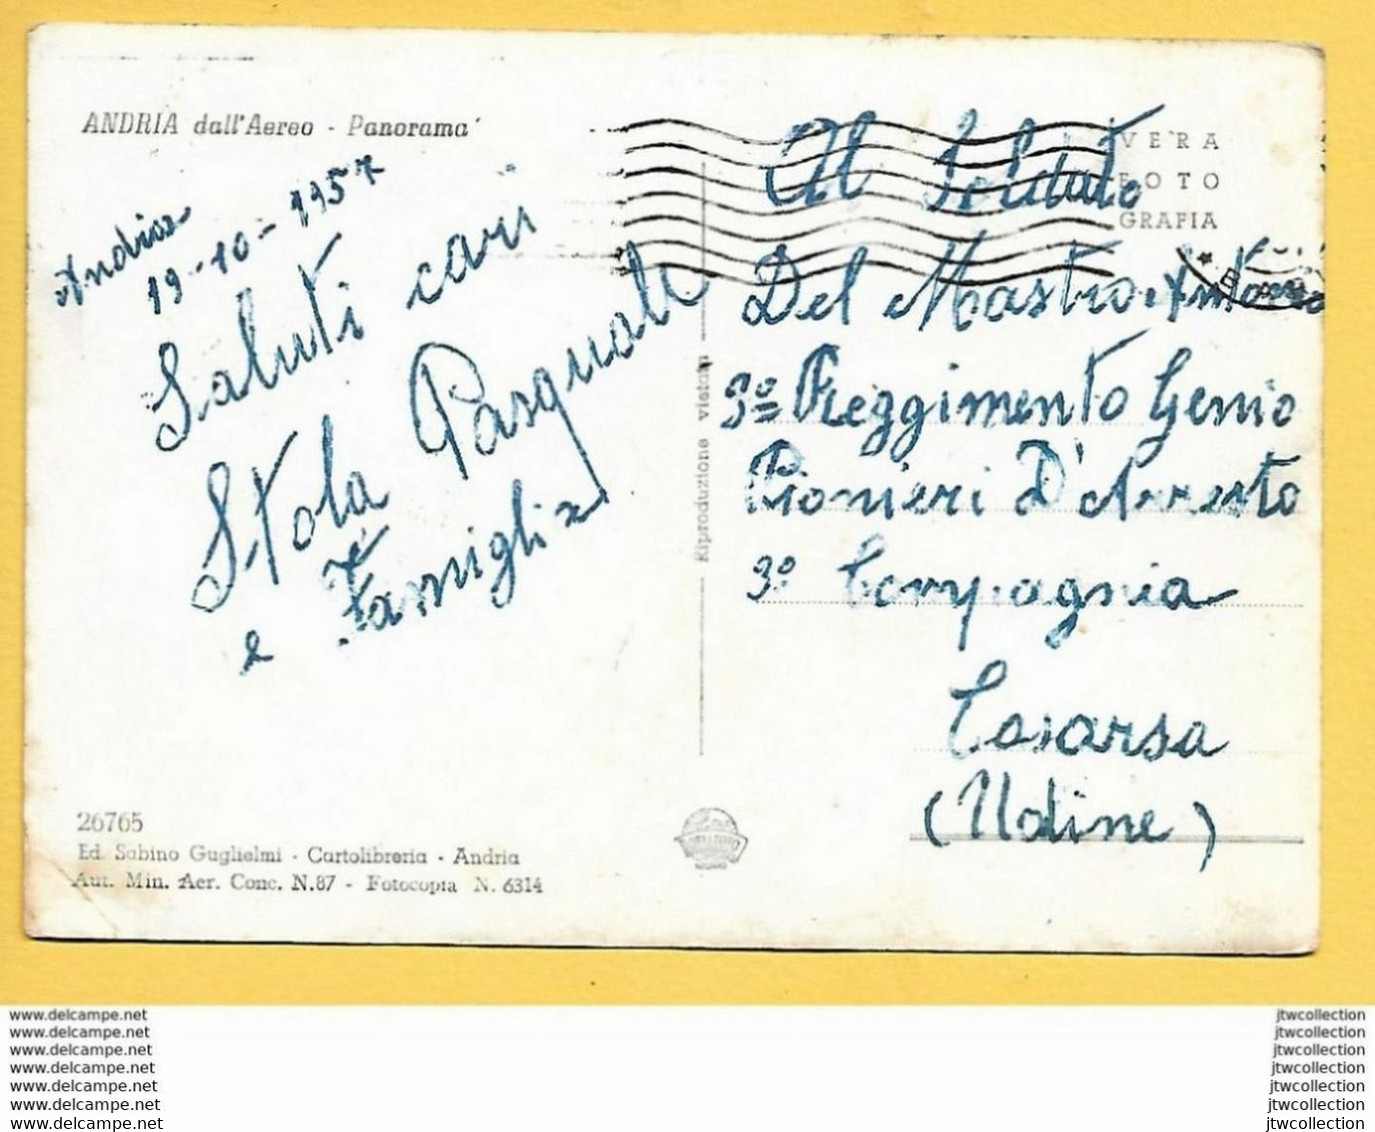 ANDRIA dall'Aereo - Panorama
Andria
19-10-1957
Saluti cari
Stola Pasquale
e Famiglia
26765
Ed. Sabino Guglielmi - Cartolibreria - Andria
Aut. Min. Aer. Conc. N.87 - Fotocopia N. 6314
Riproduzione vietata
VERA
FOTO
GRAFIA
Al Soldato
Del Mastro Antonio
3º Reggimento Genio
Pionieri D'Arresto
3º Compagnia
Casarsa
(Udine)
www.delcampe.net
www.delcampe.net
www.delcampe.net
www.delcampe.net
www.delcampe.net
www.delcampe.net
www.delcampe.net
jtwcollection
jtwcollection
jtwcollection
jtwcollection
jtwcollection
jtwcollection
jtwcollection